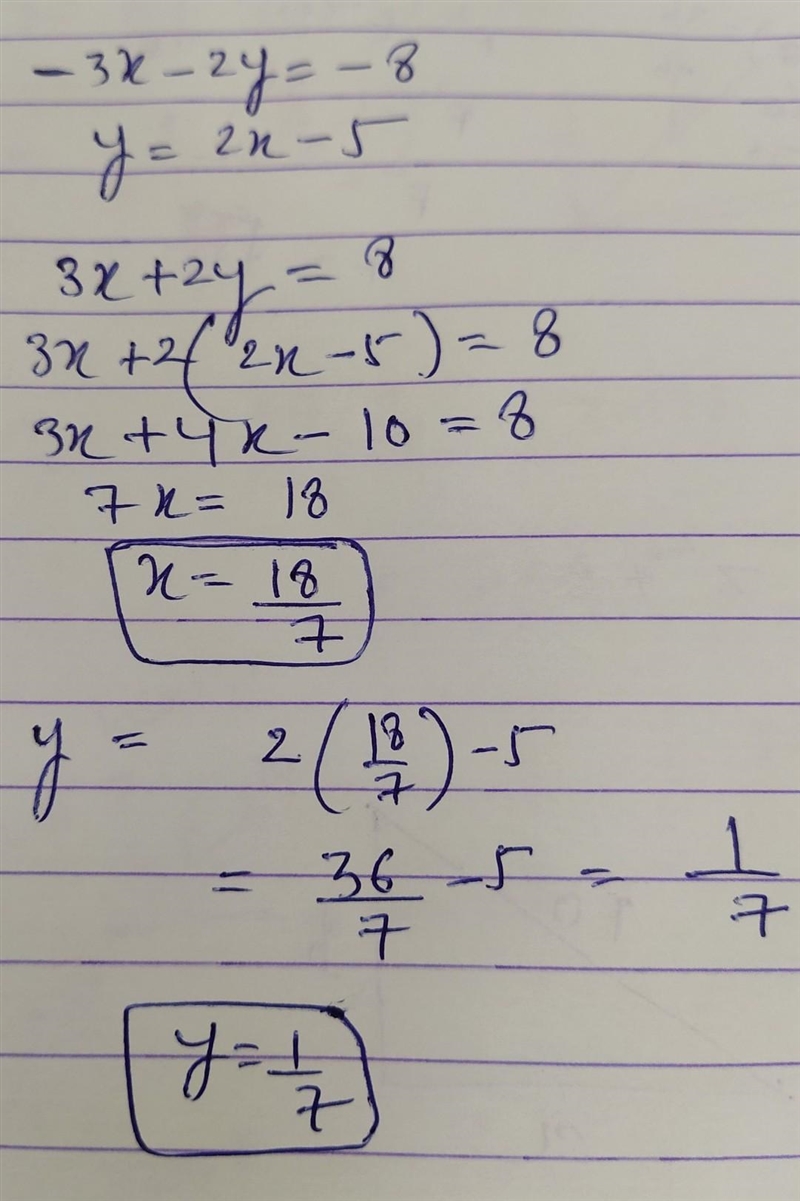 -3x - 2y = -8
y = 2x - 5
3x + 2y = 8
3x + 2(2x - 5) = 8
3x + 4x - 10 = 8
7x = 18
x = 18/7
y = 2(18/7) - 5
= 36/7 - 5 = 1/7
y = 1/7